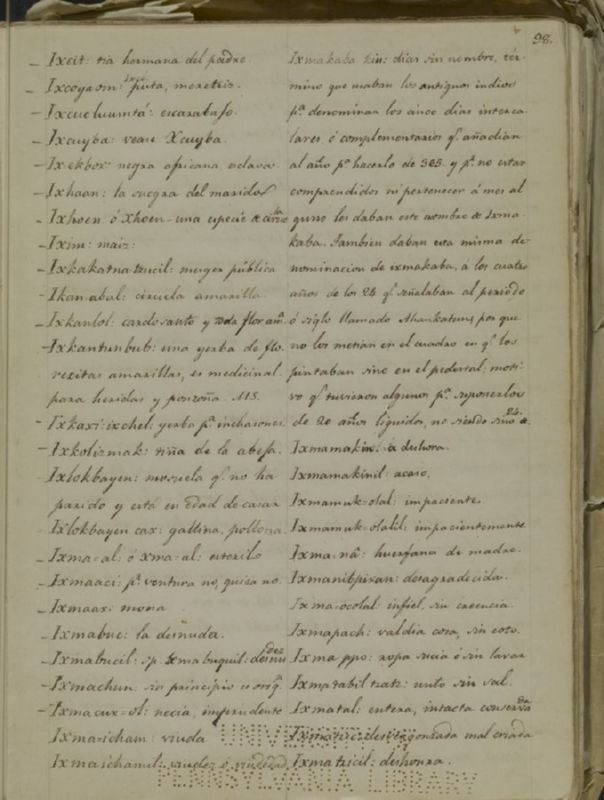 98.
Ixcit: tia hermana del padre.
Ixcoyom: puta, meretriz.
Ixcucluumtá: escarabajo.
Ixcuyba: vease Xcuyba.
Ixekbox negra africana, esclava.
Ixhaan: la suegra del marido
Ixhoen ó Xhoen una especie de
Ixim: maiz:
Ixkakatnatzucil: muger pública
Ikan-abal: ciruela amarilla.
Ixkanlol: cardo santo y toda flor am.
Ixkantunbub: una yerba de flo-
rezitas amarillas, es medicinal
para heridas y ponzoña. MS.
Ixkaxi-ixchel: yerba pª. inchasones.
Ixkolizmak: tiña de la cabesa.
Ixlokbayen: mosuela q.e no ha
parido y está en edad de casar
Ixlokbayen cax: gallina, pollona.
Ixma-al: ó xma-al: esterilo
Ixmaaci: p.r ventura no, quisa no.
Ixmaax: mona
Ixmabuc: la desnuda.
Ixmabucil: sp. xmabuquil: desnudez
Ixmachun: sin principio u orig.n
Ixmacux-ol: necia, imprudente
Ixma-icham: viuda
Ixmaichamil: viudez ó viudedad
Ixmakaba kin: dias sin nombre, tér-
mino que usaban los antiguos indios
pª. denominar los cinco dias interca-
lares, ó complementarios q.e añadian
al año pª. hacerlo de 365. y p.r no estar
comprendidos ni pertenecer á mes al
guno les daban este nombre de Ixma-
kaba. Tambien daban esta misma de-
nominacion de ixmakaba, á los cuatro
años de los 24 q.e señalaban al periodo
ó siglo llamado Ahaukatun; por que
no los metian en el cuadro en q.e los
pintaban sino en el pedestal: moti-
vo q.e tuvieron algunos pª. suponerlos
de 20 años liquidos, no siendo sino de 24.
Ixmamakin: á deshora.
Ixmamakinil: acaso.
Ixmamuk-olal: impaciente.
Ixmamuk-olalil: impacientemente
Ixma-nâ: huerfana de madre.
Ixmanibpixan: desagradecida.
Ixma-ocolal: infiel, sin creencia.
Ixmapach: valdia cosa, sin coto.
Ixma ppo: ropa sucia ó sin lavar
Ixmatabil tzatz: unto sin sal.
Ixmatal: entera, intacta conservada
desvergonzada mal criada
Ixmatzicil: deshonra.
UNIVERSITY
PENNSYLVANIA LIBRARY